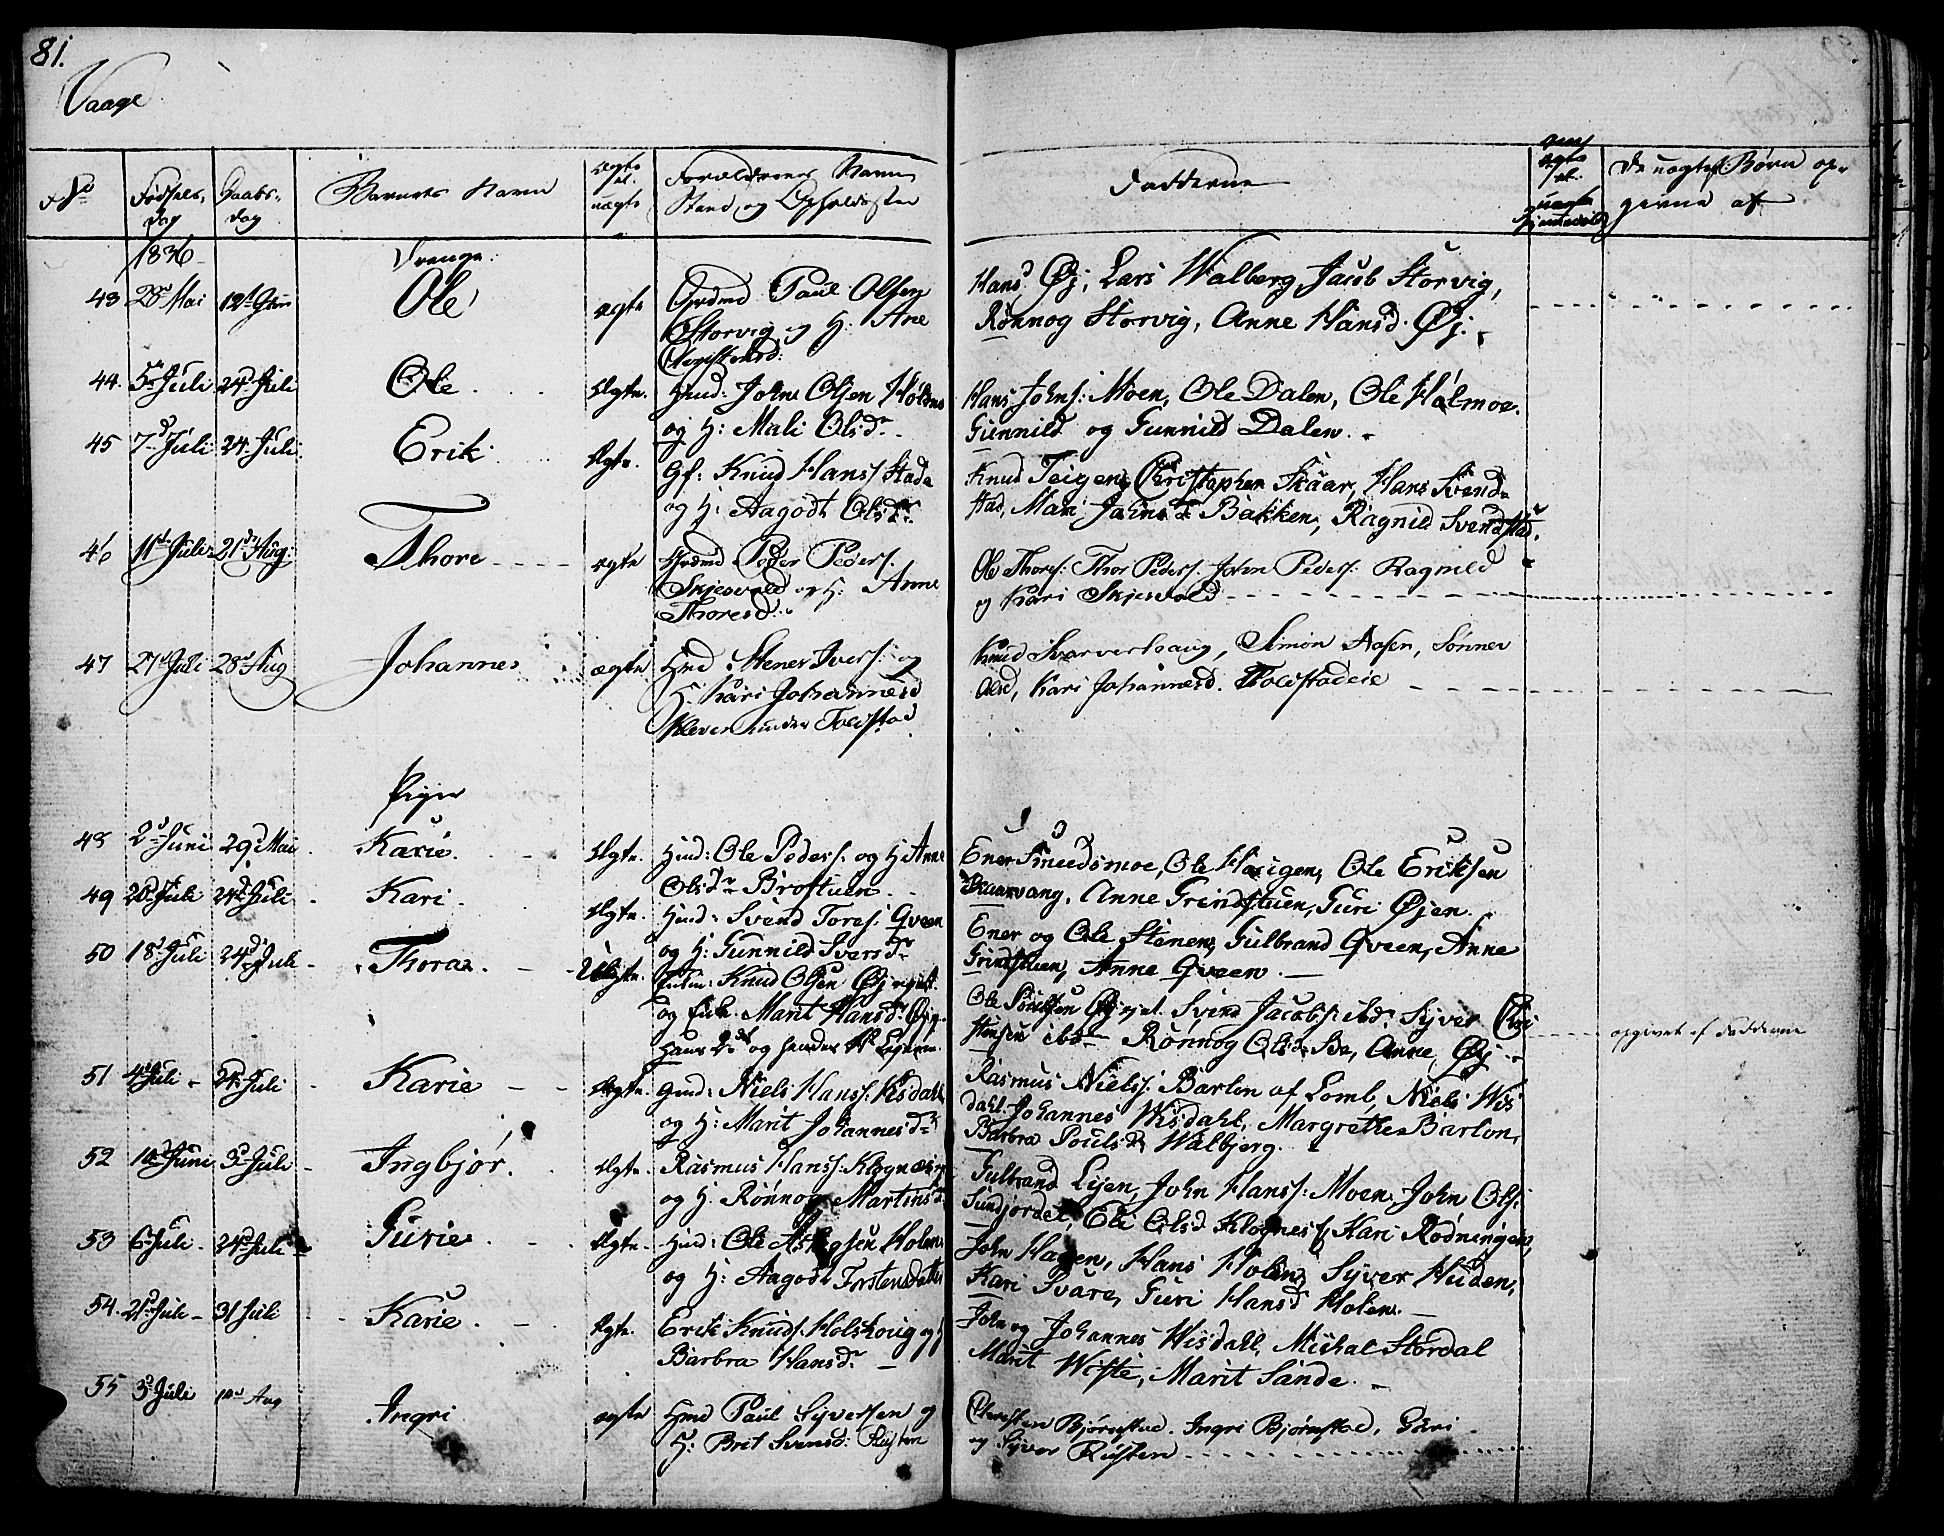 81.
Vaage
No Fødsels- Daabs- Barnets Navn ægte Forældrenes Navn
dag dag el. uægte Stand og Opholdssted
Fadderne
De uægte Børn op-
givne af
1836 Drenge.
43 28de Mai Ole ægte Paul Olsen
Storvig og H: Ane
Hans Øj, Lars Walberg, Jacob Storvig,
Rønnog Storvig, Anne Hansd. Øj.
44. 5te Juli 24d Juli Ole Ægte. Hmd: John Olsen
og H: Mali Olsdr
Hans Johns: Moen, Ole Dalen, Ole Holmoe.
Gunnild og Gunnild Dalen.
45 7d Juli 24. Juli Erik Ægte. Gf: Knud Hanss Stade
og H: Aagodt Olsdr
Knud Teigen, Christopher Skaar, Hans Svend-
stad, Mari Johnsdr Bakken, Ragnild Svendstad.
46 11te Juli 21de Aug: Thore ægte Peder Peders.
Skjesvold og H: Anne
Thoresd:
Ole Thores: Thor Peders. John Peders: Ragnild
og Kari Skjesvold
47 27d Juli 28d Aug Johannes ægte Hmd Stener Ivers: og
H: Kari Johannesd
Kleven under Toldstad
Knud Svarverhaug, Simon Aasen, Sønnev
Olsd, Kari Johannesd. Toldstadeie
Piger
48 2d Juni 29d Mai Karie. Ægte. Hmd: Ole Peders. og H. Anne
Olsdr Brostuen
Ener Smedsmoe, Ole Haugen, Ole Eriksen
Skaarvang, Anne Grindstuen, Guri Øjen.
49 20d Juli 24d Juli Kari. Ægte. Hmd: Svend Tores: Qveen
og H: Gunnild Iversdr
Ener og Ole Stenen, Gulbrand Qveen, Anne
Grindstuen, Anne Qveen.
50 18d Juli 24d Juli Thora. Uægte. Knud Olsen Øj
og Marit Hansdr Øje
hans 2det og hendes 1te Lejerm.
Ole Poulsen Øjsjel. Svend Jacobs: ibd. Syver Chri
stensen ibd Rønnog Olsdr Bø, Anne Øj
opgivet af Fadderne
51 4de Juli 24 Juli Karie Ægte. Gmd: Niels Hanss. Visdahl
og H: Marit Johannesdr
Rasmus Nielss: Barlon af Lomb, Niels Wis
dahl. Johannes Wisdahl, Margrethe Barlon,
Barbra Poulsdr Walbjerg.
52 10d Juni 3d Juli Ingbjør. Ægte. Rasmus Hanss: Klognæs
og H: Rønnog Martinsd
Gulbrand Lien, John Hanss: Moen, John Ols:
Sundjordet, Eli Olsd Klognes, Kari Rødningen,
53 6 Juli. 24d Juli Gurie. Ægte. Hmd: Ole Holen
og H: Aagodt Torstensdatter
John Hagen, Hans Holen, Syver Huden,
Kari Svare, Guri Hansd Holen.
54. 21d Juli 31 Juli Karie. Ægte. Erik Knuds. Holshoug og H
Barbra Hansdr
John og Johannes Wisdahl, Mickal Stordal
Marit Wiste, Marit Sande.
55 3d Juli Aug Ingri ægte Hmd Paul Syversen og
H: Brit Svensd: Rusten
Christen Bjørnstad. Ingri Bjørnstad, Guri
og Syver Rusten